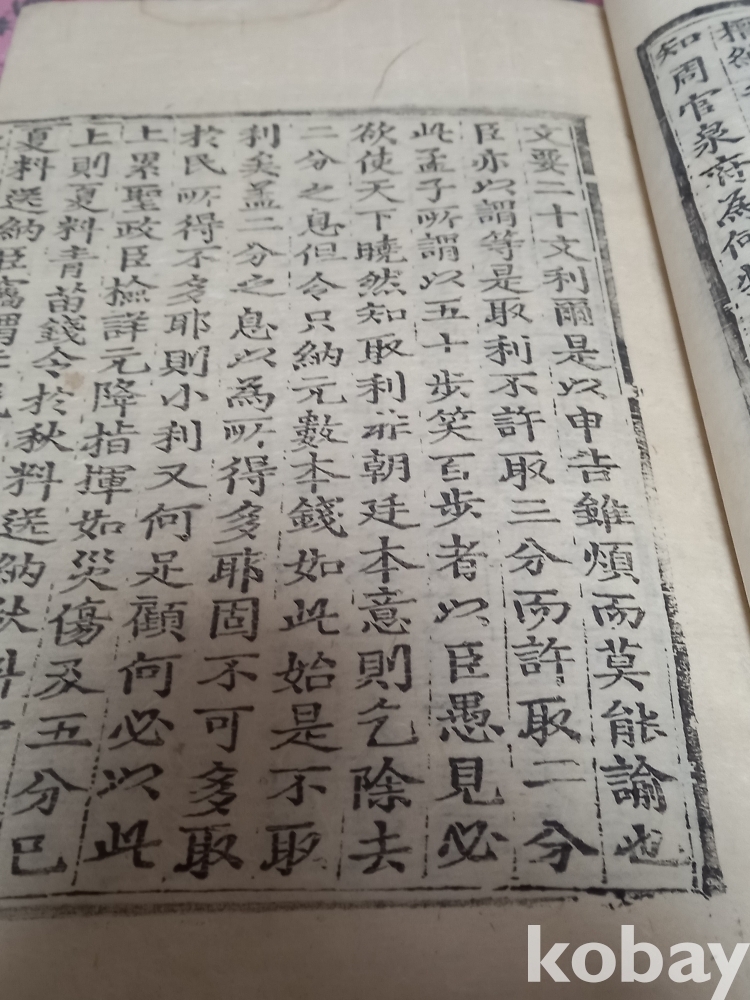 知周官泉府為何
文要二十文利爾是以申告雖煩而莫能諭也
臣亦以謂等是取利不許取三分而許取二分
此孟子所謂以五十步笑百步者以臣愚見必
欲使天下曉然知取利非朝廷本意則乞除去
二分之息但令只納元數本錢如此始是不取
利矣蓋二分之息以為所得多耶固不可多取
於民所得不多耶則小利又何足顧何必以此
上累聖政臣撿詳元降指揮如災傷及五分已
上則夏料青苗錢令於秋料送納秋料
夏料送納臣竊謂
kobay